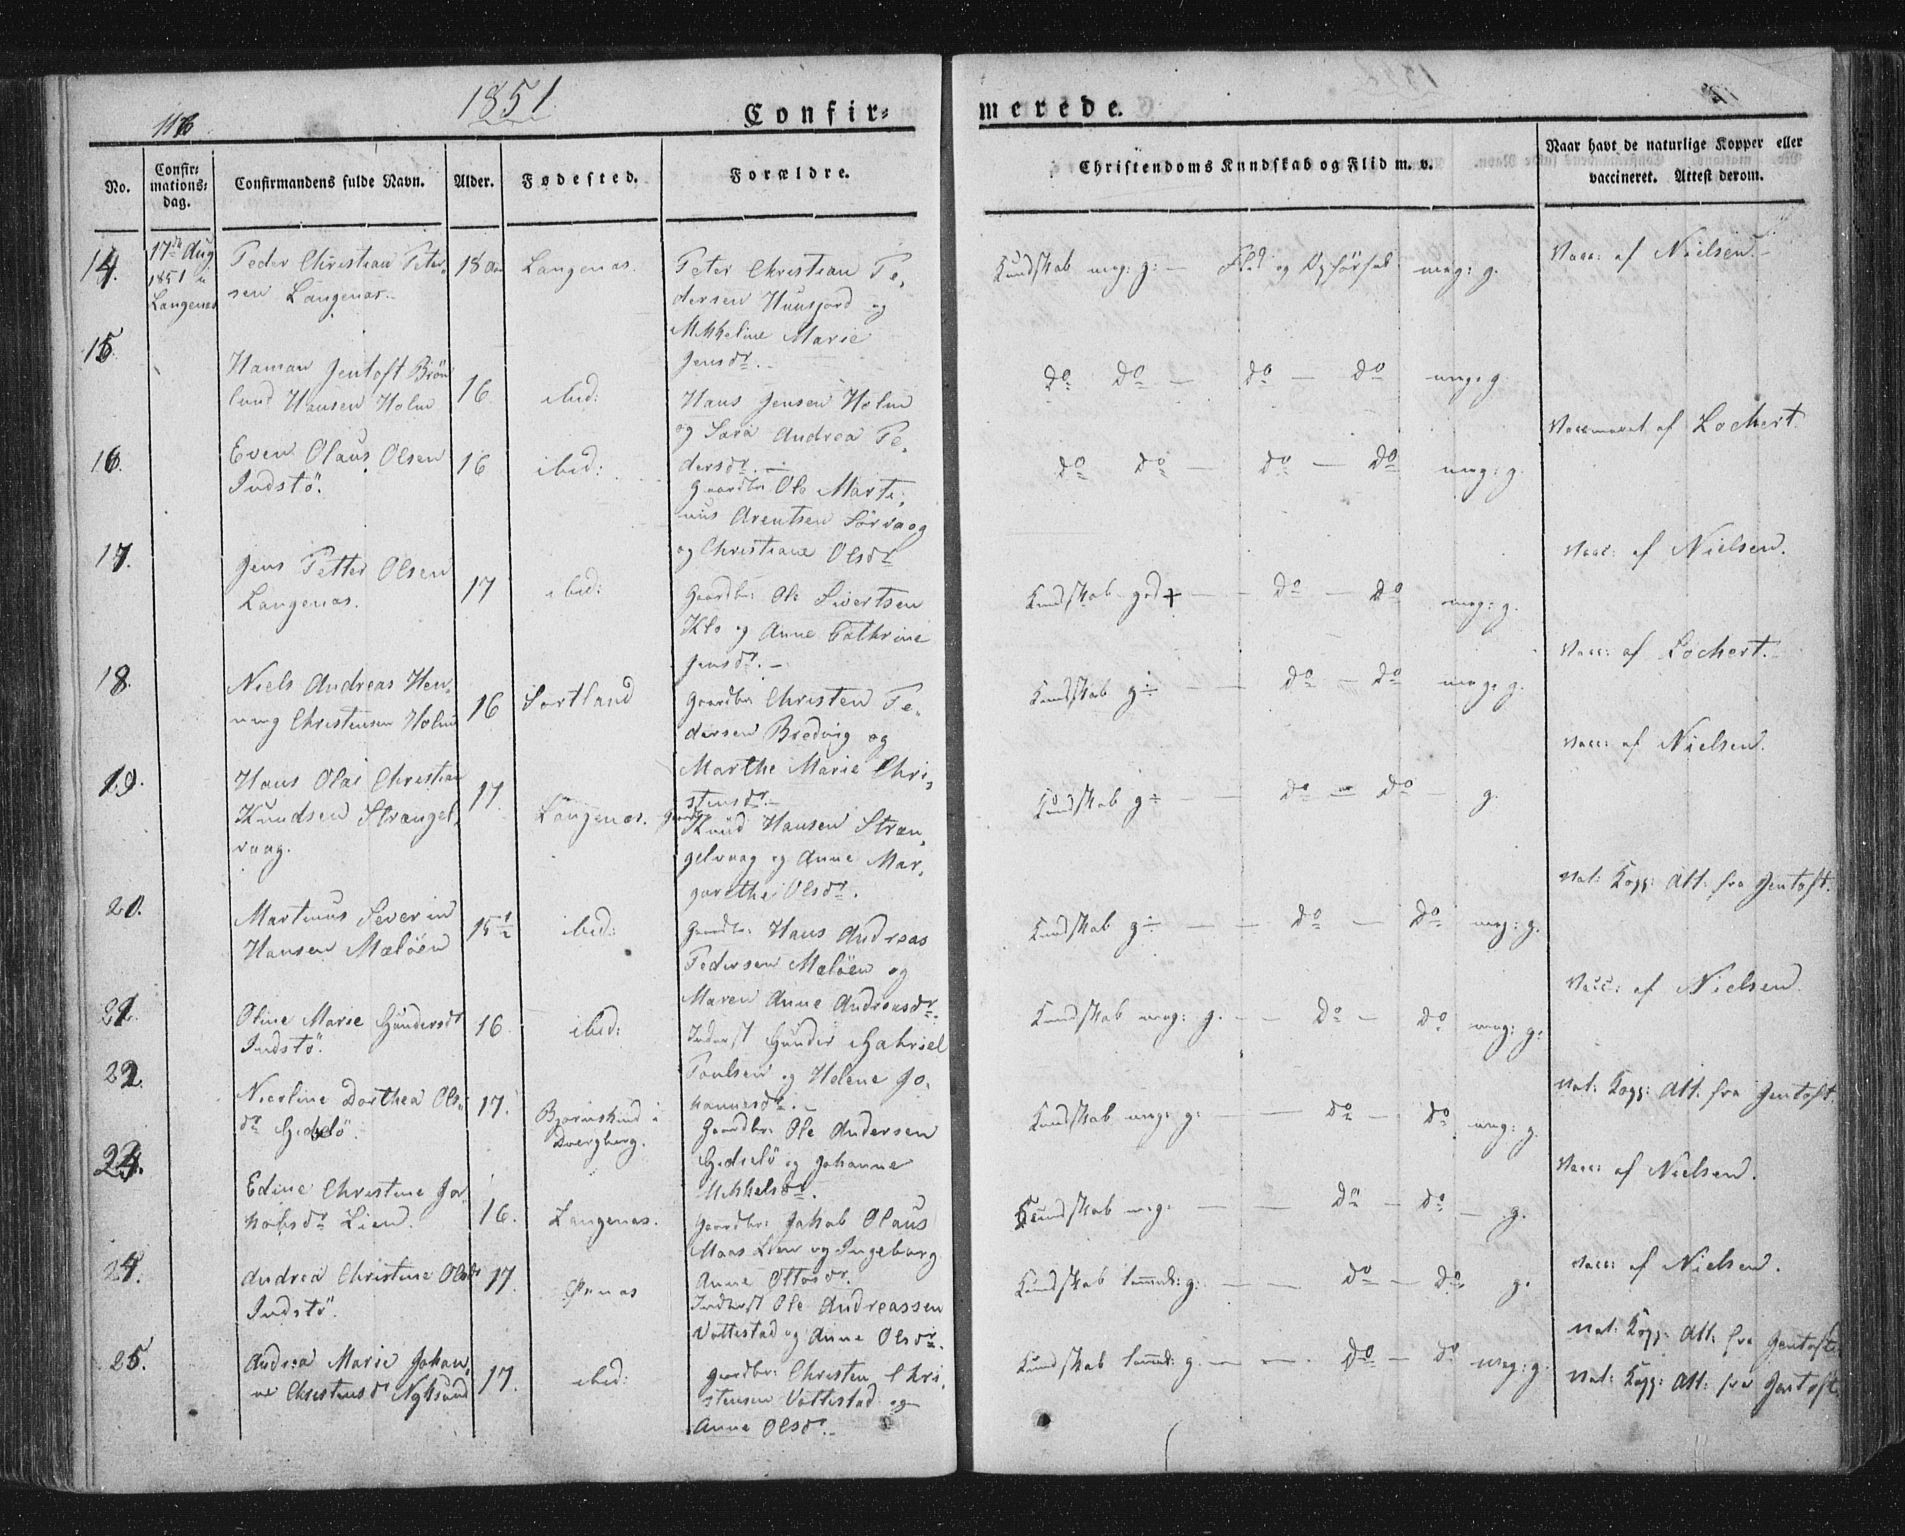 116
1851
Confir=
merede.
No.
Confir=
mations=
dag.
Confirmandens fulde Navn.
Alder.
Fødested.
Forældre.
Christendoms Kundskab og Flid m. v.
Naar havt de naturlige Kopper eller
vaccineret. Attest derom.
14.
17de Aug
1851 i
Langenæs
Peder Christian Peter-
sen Langenæs.
18 Aar
Langenæs.
Peter Christian Pe-
dersen Huusjord og
Mikkeline Marie
Jensdr.
Kundskab meg: g: — Flid og Opførsel meg: g.
Vacc: af Nielsen.
15
Haman Jentoft Brön
lund Hansen Holm
16
ibid:
Hans Jensen Holm
og Sara Andrea Pe-
dersdr.
Do Do — Do — Do meg: g
Vaccineret af Lochert.
16.
Even Olaus Olsen
Indstö.
16
ibid:
Gaardbr: Ole Marti-
nus Arentsen Sörvaag
og Christiane Olsdr
Do Do — Do — Do meg: g.
Vacc: af Nielsen.
17.
Jens Petter Olsen
Langenæs.
17
ibid:
Gaardbr: Ole Sivertsen
Klo og Anne Cathrine
Jensdr.
Kundskab god + — — Do — Do meg: g.
Vacc: af Lochert.
18.
Niels Andreas Hen-
ning Christensen Holm
16
Sortland
Gaardbr Christen Pe-
dersen Bredvig og
Marthe Marie Chri-
stensdr.
Kundskab g: — — Do — Do meg: g.
Vacc: af Nielsen.
19.
Hans Olai Christian
Knudsen Strangel-
vaag.
17
Langenæs.
Gaardbr
Knud Hansen Stran-
gelvaag og Anne Mar-
garethe Olsdr.
Kundskab g: — — Do — Do — g.
Nat: Kopp: Att: fra Jentoft.
20.
Martinus Severin
Hansen Mæløen
15 1/2
ibid:
Gaardbr: Hans Andreas
Pedersen Mæløen og
Maren Anne Andreasdr.
Kundskab g: — — Do — Do meg: g.
Vacc: af Nielsen.
21.
Oline Marie Gundersdr
Indstö.
16
ibid:
Inderst Gunder Gabriel
Poulsen og Helene Jo-
hannesdr.
Kundskab meg: g. — — Do — Do meg: g.
Nat: Kopp: Att. fra Jentoft.
22.
Nicoline Dorthea Ols-
dr Gidslö.
17.
Bjørnskind i
Dverberg.
Gaardbr: Ole Andersen
Gidslö og Johanne
Mikkelsdr.
Kundskab meg: g: — — Do — Do meg: g.
Vacc: af Nielsen.
24.
Edine Christine Ja-
kobsdr Lien.
16.
Langenæs.
Gaardbr: Jakob Olaus
Maas Lien og Ingeborg
Anne Ottosdr.
Kundskab meg: — — Do — Do — g.
Vacc: af Nielsen.
24.
Andrea Christine Olsdr
Indstö.
17.
Øxnæs
Inderst Ole Andreassen
Vottestad og Anne Olsdr.
Kundskab temmel: g: — — Do — Do g.
Nat: Kopp: Att: fra Jentoft.
25.
Andrea Marie Johan-
ne Christensdr Nyksund
17.
ibid:
Gaardbr: Christen Chri-
stensen Vottestad og
Anne Olsdr.
Kundskab temmel: g. — — Do — Do meg: g.
Nat: Kopp: Att: fra Jentoft.